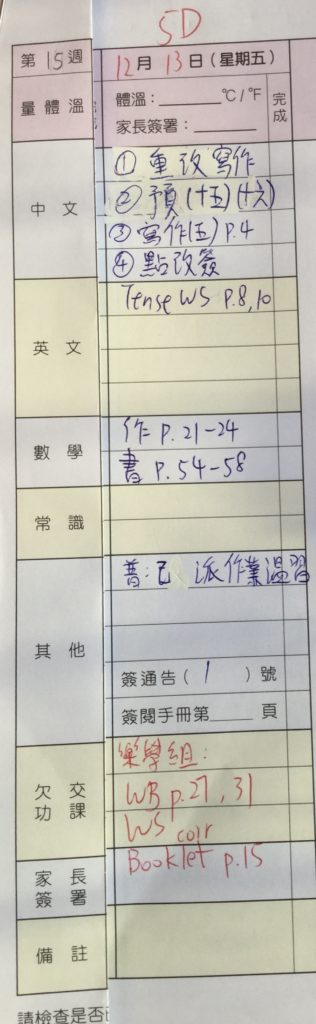 5D
第 15 週
12 月 13 日 (星期五)
量體溫
體溫：______℃/℉
家長簽署：______
完成
中文
① 重改寫作
② 預(十五)(十六)
③ 寫作(五) p.4
④ 點改簽
英文
Tense WS p.8,10
數學
作 p.21-24
書 p.54-58
常識
其他
普：已 派作業溫習
簽通告( 1 )號
簽閱手冊第____頁
欠交功課
樂學組：
WB p.27,31
WS corr
Booklet p.15
家長簽署
備註
請檢查是否